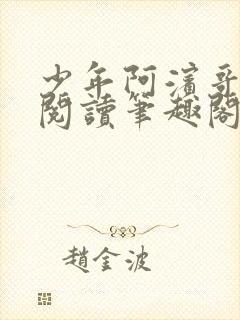 少年阿濱哥
閱讀筆趣閣
趙金波